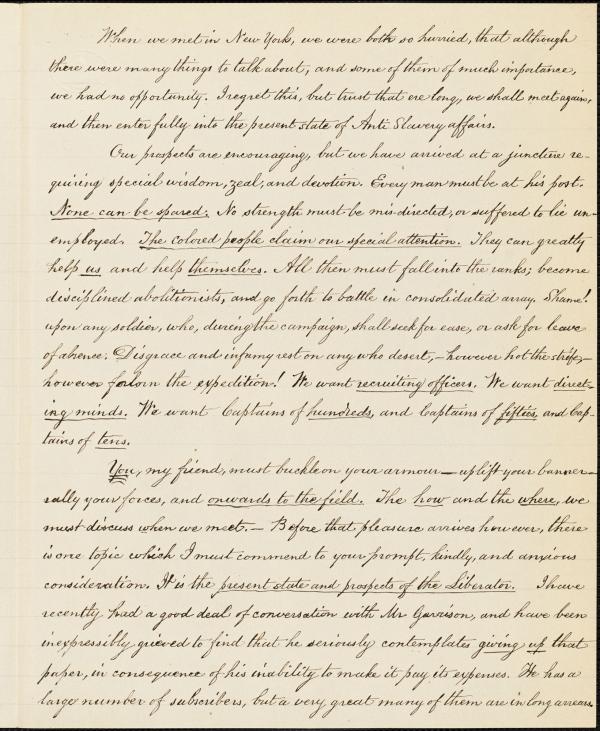 When we met in New York, we were both so hurried, that although
there were many things to talk about, and some of them of much importance,
we had no opportunity. I regret this, but trust that ere long, we shall meet again,
and then enter fully into the present state of Anti Slavery affairs.
Our prospects are encouraging, but we have arrived at a juncture re-
quiring special wisdom, zeal, and devotion. Every man must be at his post.
None can be spared. No strength must be mis-directed, or suffered to lie un-
employed. The colored people claim our special attention. They can greatly
help us, and help themselves. All then must fall into the ranks; become
disciplined abolitionists, and go forth to battle in consolidated array. Shame!
upon any soldier, who, during the campaign, shall seek for ease, or ask for leave
of absence. Disgrace and infamy rest on any who desert,—however hot the strife,—
however forlorn the expedition! We want recruiting officers. We want direct-
ing minds. We want Captains of hundreds, and Captains of fifties, and Cap-
tains of tens.
You, my friend, must buckle on your armour—uplift your banner—
rally your forces, and onwards to the field. The how and the where, we
must discuss when we meet.— Before that pleasure arrives however, there
is one topic which I must commend to your prompt, kindly, and anxious
consideration. It is the present state and prospects of the Liberator. I have
recently had a good deal of conversation with Mr Garrison, and have been
inexpressibly grieved to find that he seriously contemplates giving up that
paper, in consequence of his inability to make it pay its expenses. He has a
large number of subscribers, but a very great many of them are in long arrears.